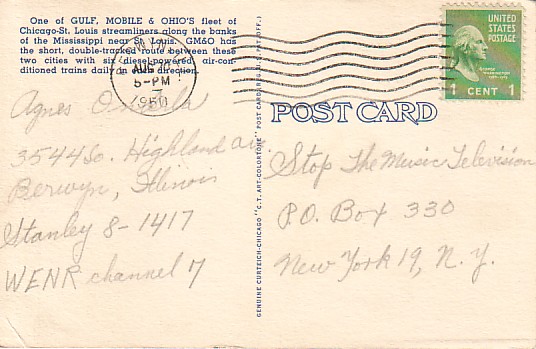 One of GULF, MOBILE & OHIO'S fleet of
Chicago-St. Louis streamliners along the banks
of the Mississippi near St. Louis. GM&O has
the short, double-tracked route between these
two cities with six diesel-powered air-con-
ditioned trains daily in each direction.
AUG
5-PM
1950
UNITED
STATES
POSTAGE
GEORGE
WASHINGTON
1 CENT 1
POST CARD
GENUINE CURTEICH-CHICAGO "C.T. ART-COLORTONE" POST CARD (REG. U.S. PAT. OFF.)
Agnes
3544 So. Highland av.
Berwyn, Illinois
Stanley 8-1417
WENR channel 7
Stop The Music Television
P.O. Box 330
New York 19, N.Y.